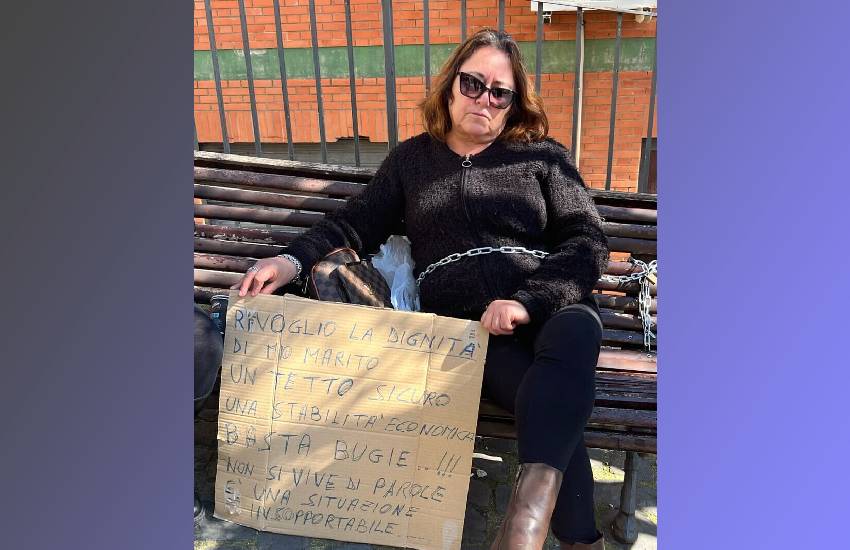 RIVOGLIO LA DIGNITA'
DI MIO MARITO E
UN TETTO SICURO
UNA STABILITA' ECONOMICA
BASTA BUGIE...!!!
NON SI VIVE DI PAROLE
E' UNA SITUAZIONE
INSOPPORTABILE....